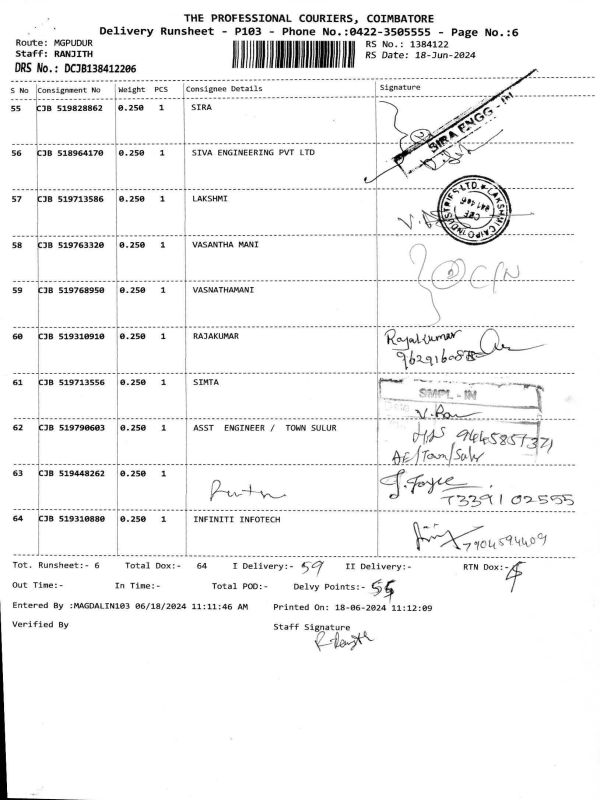 THE PROFESSIONAL COURIERS, COIMBATORE
Delivery Runsheet - P103 - Phone No.:0422-3505555 - Page No.:6
Route: MGPUDUR
RS No.: 1384122
Staff: RANJITH
RS Date: 18-Jun-2024
DRS No.: DCJB138412206
S No Consignment No Weight PCS Consignee Details Signature
55 CJB 519828862 0.250 1 SIRA
SIRA ENGG - IN
56 CJB 518964170 0.250 1 SIVA ENGINEERING PVT LTD
57 CJB 519713586 0.250 1 LAKSHMI
58 CJB 519763320 0.250 1 VASANTHA MANI
59 CJB 519768950 0.250 1 VASNATHAMANI
60 CJB 519310910 0.250 1 RAJAKUMAR Rajakumar
61 CJB 519713556 0.250 1 SIMTA
SMPL - IN
62 CJB 519790603 0.250 1 ASST ENGINEER / TOWN SULUR
AE/Town/Sulur
63 CJB 519448262 0.250 1
7339102555
64 CJB 519310880 0.250 1 INFINITI INFOTECH
7904594409
Tot. Runsheet:- 6 Total Dox:- 64 I Delivery:- 59 II Delivery:- RTN Dox:-
Out Time:- In Time:- Total POD:- Delvy Points:-
Entered By :MAGDALIN103 06/18/2024 11:11:46 AM Printed On: 18-06-2024 11:12:09
Verified By Staff Signature